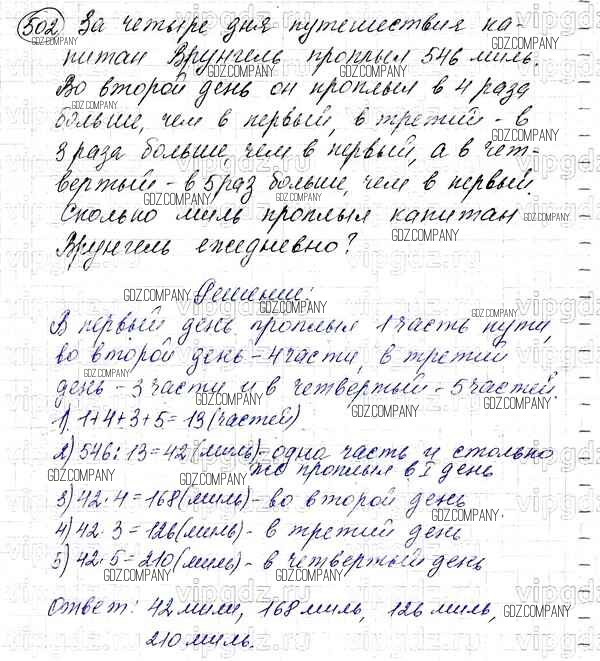 502 За четыре дня путешествия ка-
питан Врунгель проплыл 546 миль.
Во второй день он проплыл в 4 раза
больше, чем в первый, в третий - в
3 раза больше, чем в первый, а в чет-
вертый - в 5 раз больше, чем в первый.
Сколько миль проплыл капитан
Врунгель ежедневно?
Решение:
В первый день проплыл 1 часть пути,
во второй день - 4 части, в третий
день - 3 части и в четвертый - 5 частей.
1) 1+4+3+5=13 (частей)
2) 546:13=42 (миль) - одна часть и столько
же проплыл в I день
3) 42·4=168 (миль) - во второй день
4) 42·3=126 (миль) - в третий день
5) 42·5=210 (миль) - в четвертый день
Ответ: 42 мили, 168 миль, 126 миль,
210 миль.
GDZ.COMPANY
vipgdz.ru